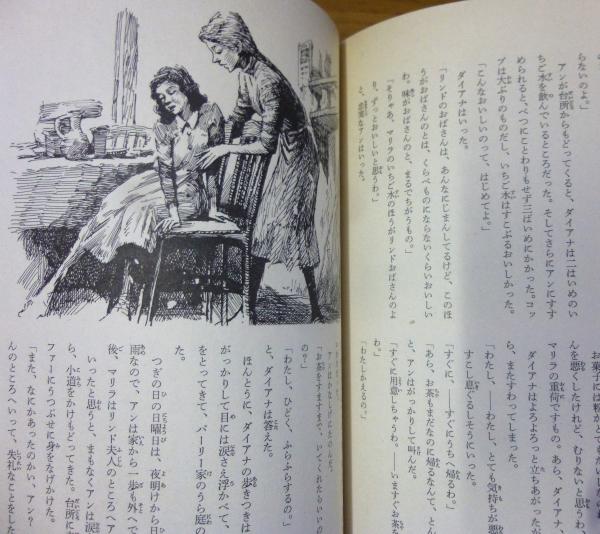 らないのよ。」
アンが台所からもどってくると、ダイアナは二はいめのい
ちご水を飲んでいるところだった。そしてさらにアンにすす
められると、べつにことわりもせず三ばいめにかかった。コッ
プは大ぶりのものだし、いちご水はすこぶるおいしかった。
「こんなおいしいのって、はじめてよ。」
ダイアナはいった。
「リンドのおばさんは、あんなにじまんしてるけど、このほ
うがおばさんのとは、くらべものにならないくらいおいしい
わ。味がおばさんのと、まるでちがうもの。」
「そりゃあ、マリラのいちご水のほうがリンドおばさんのよ
り、ずっとおいしいと思うわ。」
と、忠実なアンはいった。
お菓子には粉が
んを悪くしたけれど、むりないと思うわ、
マリラの重荷ですもの。あら、ダイアナ、
ダイアナはよろよろっと立ちあがったが
ら、またすわってしまった。
「わたし、――わたし、とても気持ちが悪
すこし息ぐるしそうにいった。
「すぐに、――すぐにうちへ帰るわ。」
「あら、お茶もまだなのに帰るなんて、とん
と、アンはがっかりして叫んだ。
「すぐに用意しちゃうわ。――いますぐお茶を
わ。」
「わたしかえるの。」
「お茶をすますまで、いてくれたらいいの
の？」
「わたし、ひどく、ふらふらするの。」
と、ダイアナは答えた。
ほんとうに、ダイアナの歩きつきは
がっかりして目には涙さえ浮かべて、
をとってきて、バーリー家のうら庭の
た。
つぎの日の日曜日は、夜明けから日
雨なので、アンは家から一歩も外へで
後、マリラはリンド夫人のところへア
いったと思うと、まもなくアンは涙
ら、小道をかけもどってきた。台所に
ファーにうつぶせに身をなげかけた。
「また、なにかあったのかい、アン？
んのところへいって、失礼なことをした